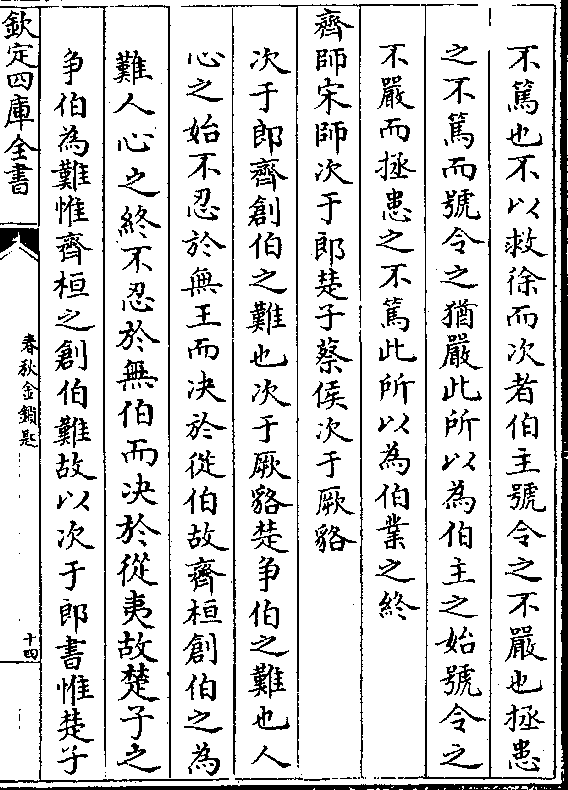 不篤也不以救徐而次者伯主號令之不嚴也拯患
之不篤而號令之猶嚴此所以為伯主之始號令之
不嚴而拯患之不篤此所以為伯業之終
齊師宋師次于郎楚子蔡侯次于厥貉
次于郎齊創伯之難也次于厥貉楚争伯之難也人
心之始不忍於無王而决於從伯故齊桓創伯之為
難人心之終不忍於無伯而决於從夷故楚子之
争伯為難惟齊桓之創伯難故以次于郎書惟楚子
欽定四庫全書
春秋金鎖匙
十四